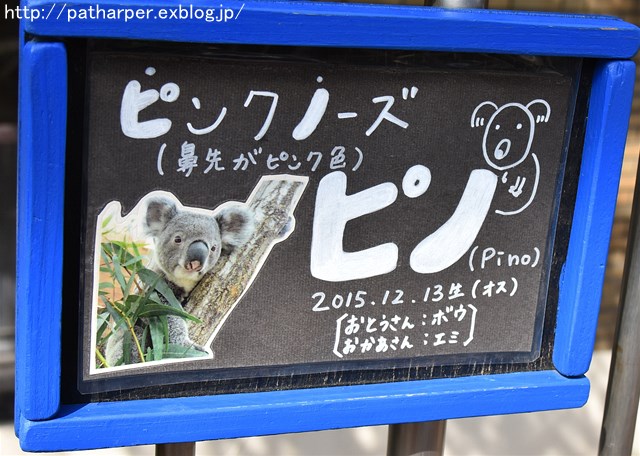 http://patharper.exblog.jp/
ピンクノーズ
(鼻先がピンク色)
ピノ
(Pino)
2015.12.13生(オス)
おとうさん:ボウ
おかあさん:エミ